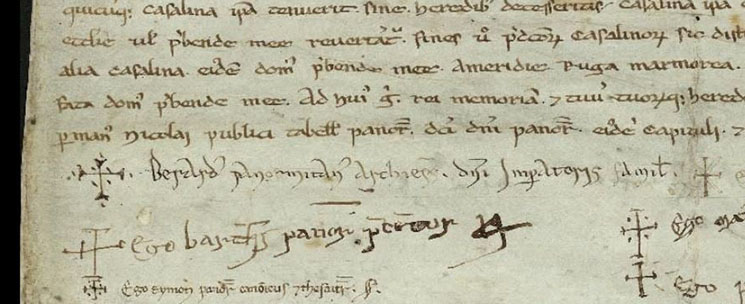 quicuq; casalina ipa tenuerit sine heredib decesserit casalina ipa
ecclie ul pbende mee revertat. fines u pdcor casalinor sic dist
alia casalina. eide dom pbende mee. Ameridie Ruga marmorea.
sata dom pbende mee. Ad hui g rei memoria. 7 tuu tuorq; hered
p man Nicolai publici tabell panor. dci dni panor. eide Capituli. 7
Berard panormitan Archieps. dni Imperatoris famil.
Ego barth panor
Ego symon panor canonicus 7 thesaur. ss.
Ego ma
Ego